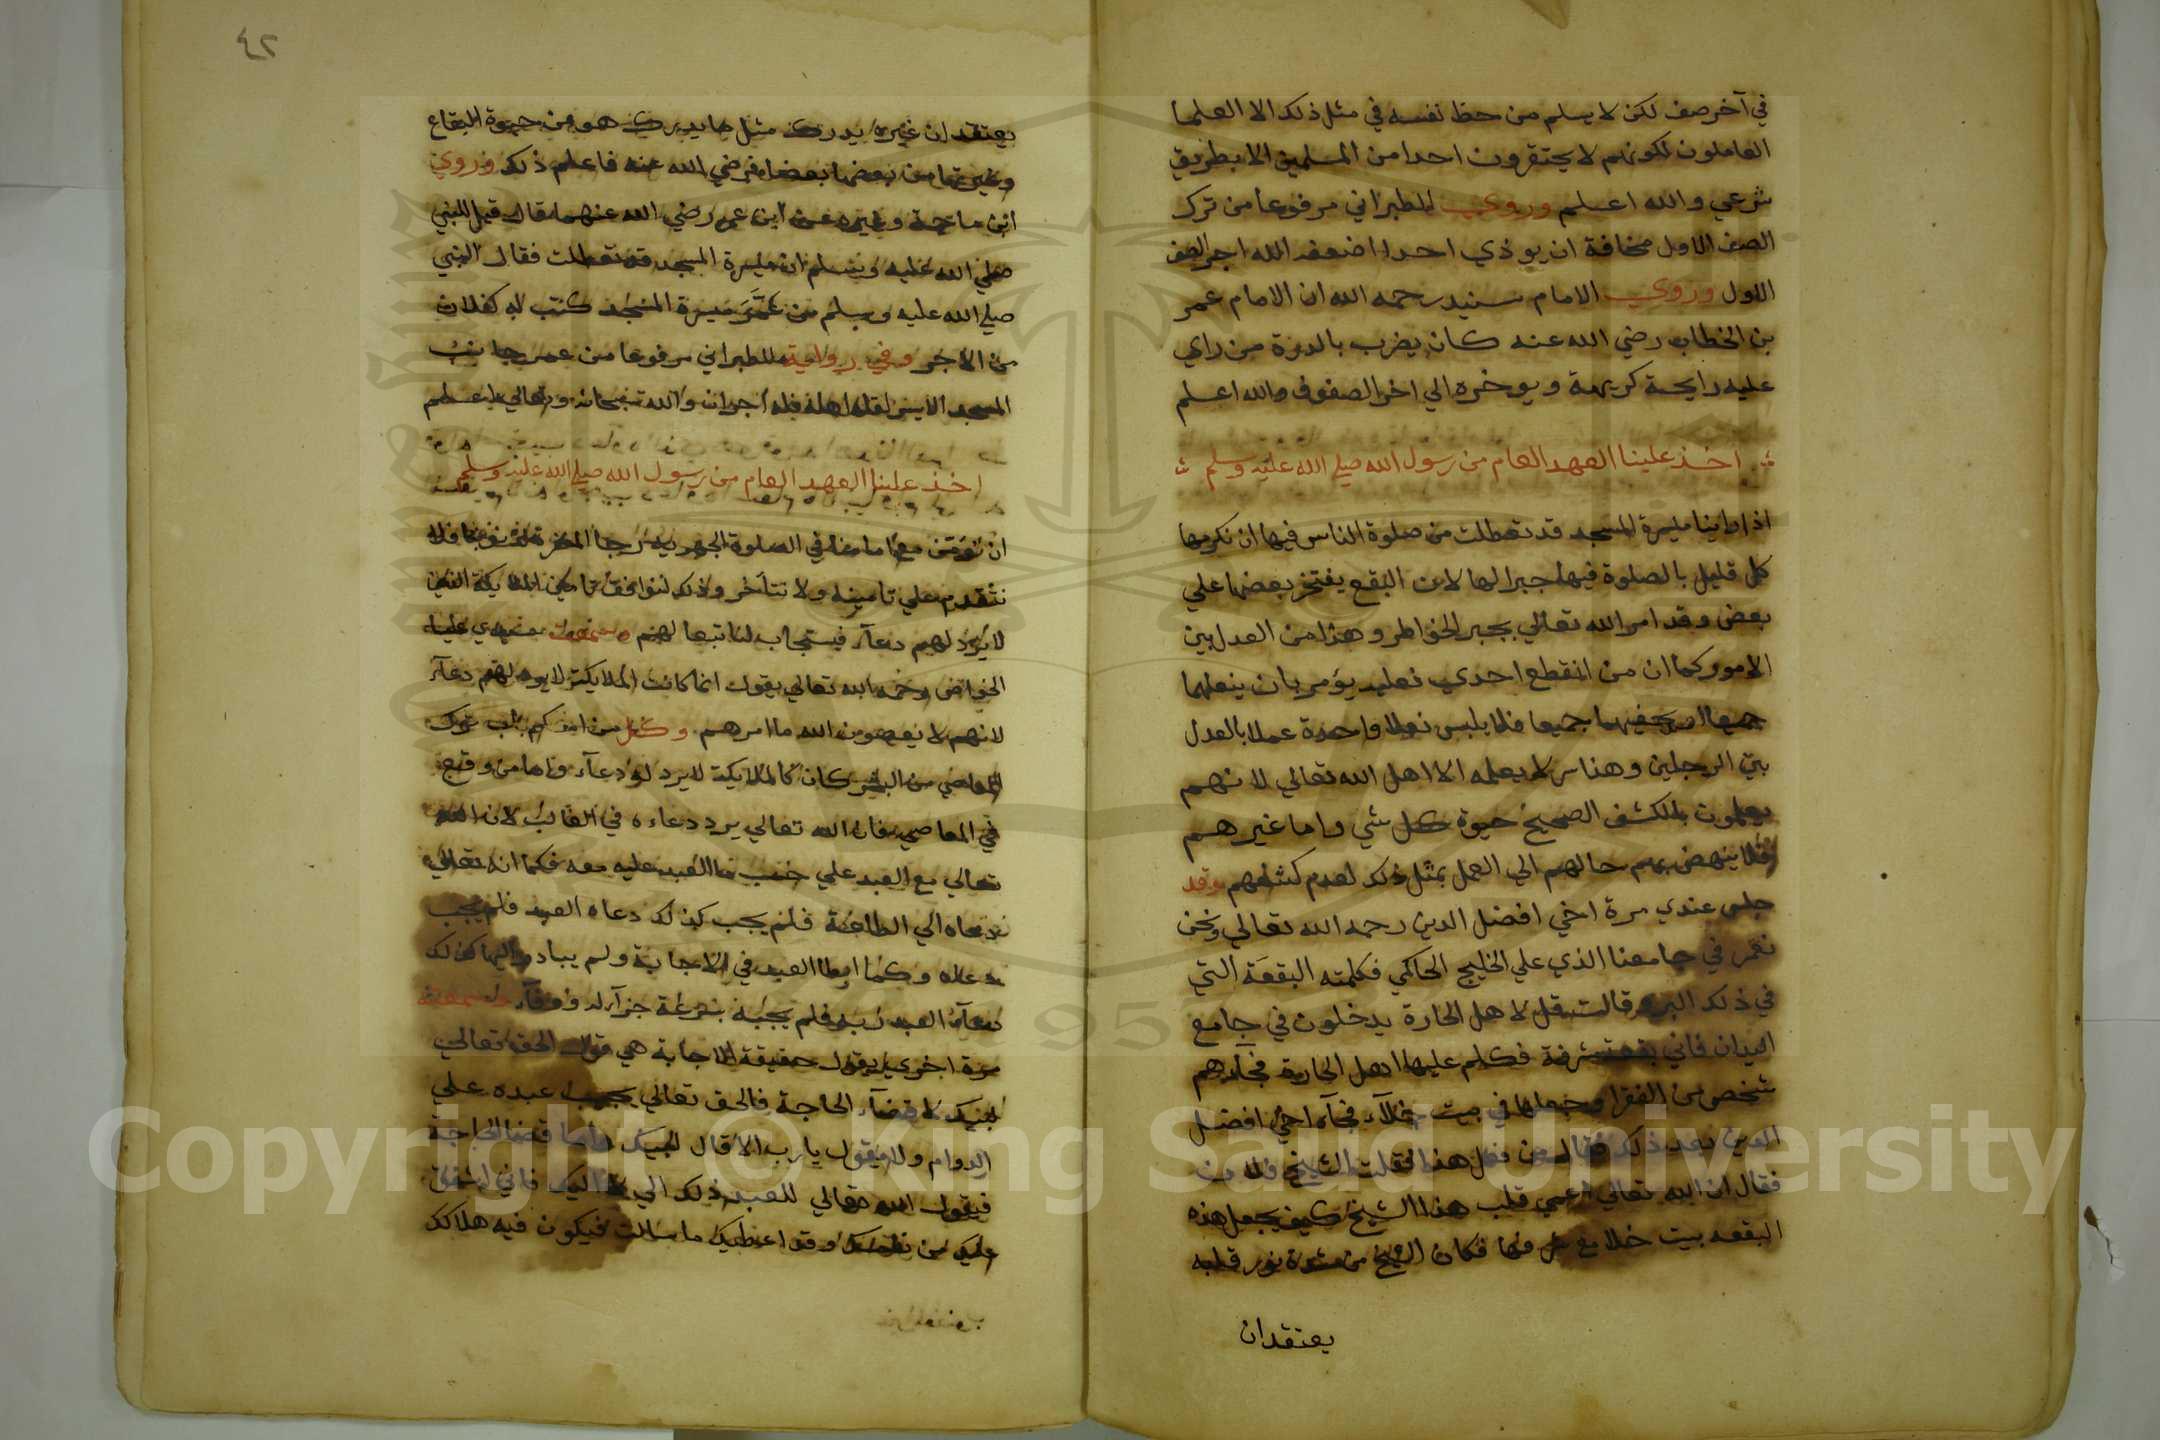 في آخر صف لكن لا يسلم من حظ نفسه في مثل ذلك الا العلما
العاملون لكونهم لا يحتقرون احدا من المسلمين الا بطريق
شرعي والله اعلم وروي الطبراني مرفوعا من ترك
الصف الاول مخافة ان يوذي احدا اضعف الله اجر الصف
الاول وروي الامام سنيد رحمه الله ان الامام عمر
بن الخطاب رضي الله عنه كان يضرب بالدرة من راي
عليه رايحة كريهة ويوخره الي اخر الصفوف والله اعلم
اخذ علينا العهد العام من رسول الله صلي الله عليه وسلم
اذا راينا ميسرة المسجد قد تعطلت من صلوة الناس فيها ان نكرمها
كل قليل بالصلوة فيها جبرا لها لان البقع يفتخر بعضها علي
بعض وقد امر الله تعالي بجبر الخواطر وهذا من العدل بين
الامور كما ان من انقطع احدي نعليه يؤمر بان ينعلهما
جميعا او يحفيهما جميعا فلا يلبس نعلا واحدة عملا بالعدل
بين الرجلين وهذا سر لا يعلمه الا اهل الله تعالي لانهم
يعلمون بالكشف الصحيح حيوة كل شي واما غيرهم
فلا ينهض بهم حالهم الي العمل بمثل ذلك لعدم كشفهم وقد
جلس عندي مرة اخي افضل الدين رحمه الله تعالي ونحن
نعمر في جامعنا الذي علي الخليج الحاكمي فكلمته البقعة التي
في ذلك البر وقالت قل لاهل الحارة يدخلون في جامع
الميدان فاني بقعة شرفة فكلم عليها اهل الحارة فجآءهم
شخص من الفقرا وجعلها في بيت خلآء فجآء اخي افضل
الدين بعد ذلك فقال من فعل هذا فقلت الشيخ فلان
فقال ان الله تعالي اعمي قلب هذا الشيخ كيف يجعل هذه
البقعه بيت خلا مع شرفها فكان الشيخ من شدة نور قلبه
يعتقد ان
٤٢
يعتقد ان غيره يدرك مثل ما يدرك هو من حيوة البقاع
وغيرتها من بعضها بعضا فرضي الله عنه فاعلم ذلك وروي
ابن ماجة وغيره عن ابن عمر رضي الله عنهما قال قيل للنبي
صلي الله عليه وسلم ان ميسرة المسجد قد تعطلت فقال النبي
صلي الله عليه وسلم من عَمَّرَ ميسرة المسجد كتب له كفلان
من الاجر وفي رواية للطبراني مرفوعا من عمر جانب
المسجد الايسر لقلة اهله فله اجران والله سبحانه وتعالي اعلم
اخذ علينا العهد العام من رسول الله صلي الله عليه وسلم
ان نؤمن مع امامنا في الصلوة الجهرية رجا المغفرة لذنوبنا فلا
نتقدم علي تامينه ولا نتآخر وذلك لنوافق تامين الملايكة الذين
لا يرد لهم دعآء فيستجاب لنا تبعا لهم وسمعت سيدي عليا
الخواص رحمه الله تعالي يقول انما كانت الملايكة لا يرد لهم دعآء
لانهم لا يعصون الله ما امرهم وكل من احكم باب ترك
المعاصي من البشر كان كالملايكة لا يرد له دعآء واما من وقع
في المعاصي فان الله تعالي يرد دعاءه في الغالب لان الله
تعالي مع العبد علي حسب ما العبد عليه معه فكما انه تعالي
دعاه الي الطاعة فلم يجب كذلك دعاه العبد فلم يجب
دعاه وكما ابطا العبد في الاجابة ولم يبادر اليها كذلك
دعآء العبد ربه فلم يجبه بسرعة جزآء له وفاقآء وسمعته
مرة اخري يقول حقيقة الاجابة هي قول الحق تعالي
لبيك لا قضآء الحاجة فالحق تعالي يجيب عبده علي
الدوام ولا يقول يا رب الا قال لبيك واما قضا الحاجة
فيقول الله تعالي للعبد ذلك الي لا اليك فاني اشفق
عليك من نفسك وقد اعطيك ما سالت فيكون فيه هلاكك
Copyright © King Saud University